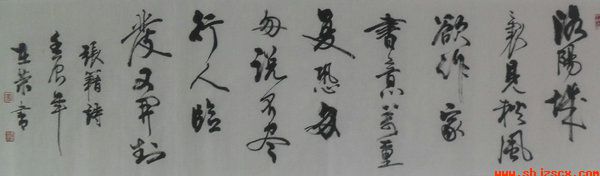 洛陽城
裏見秋風
欲作家
書意萬重
复恐匆
匆說不盡
行人臨
發又開封
張籍詩
年
書
www.shjzscx.com